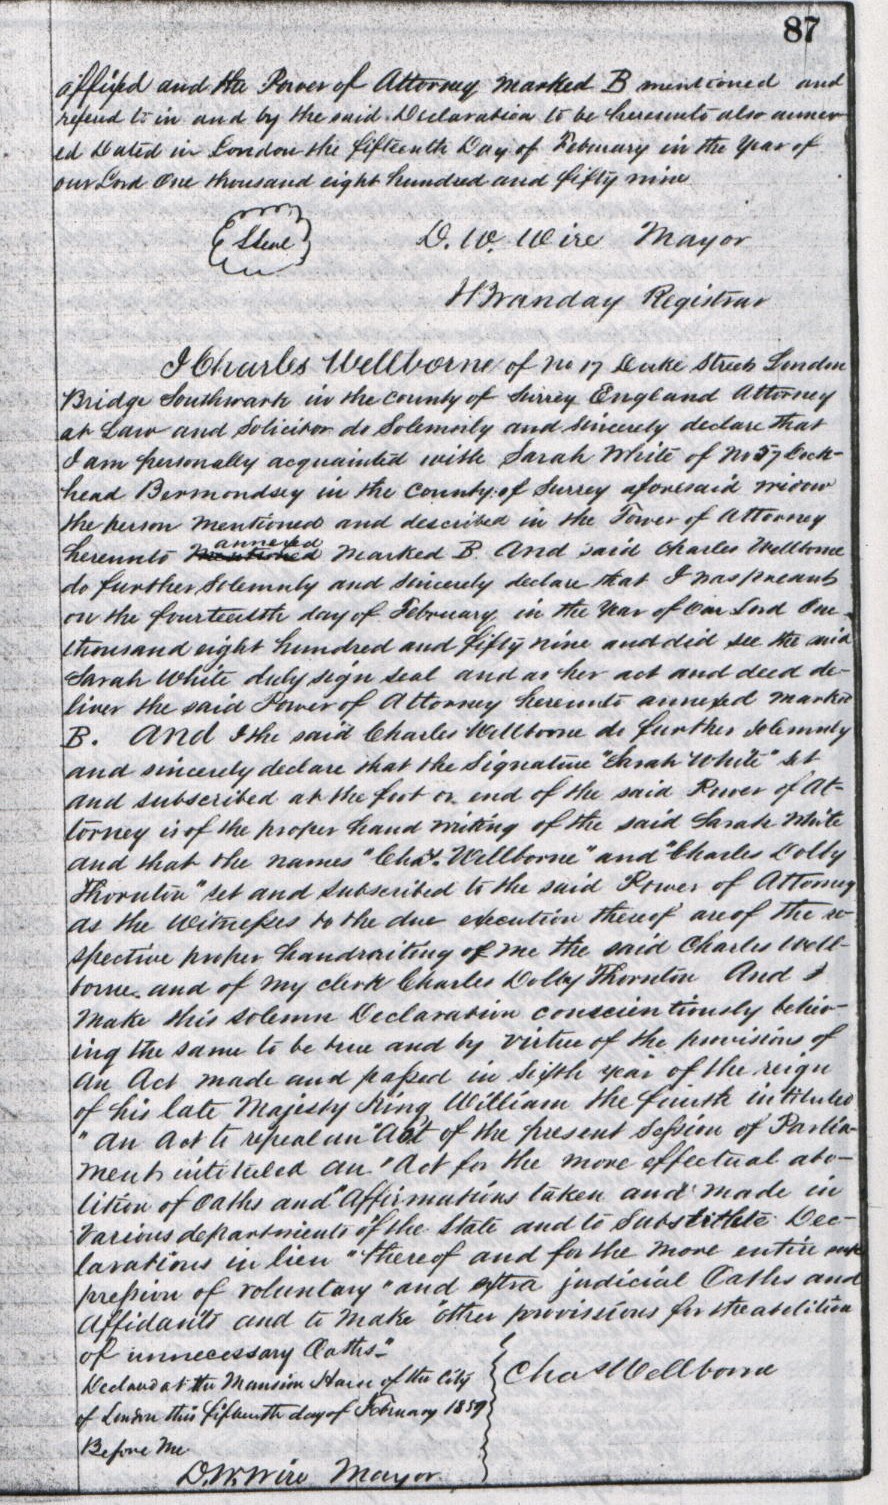 87
affixed and the Power of Attorney Marked B mentioned and
refered to in and by the said Declaration to be hereunto also annex-
ed Dated in London the fifteenth Day of February in the Year of
our Lord One thousand eight hundred and fifty nine
D. W. Wire Mayor
Registrar
I Charles Wellborne of No 17 Duke Street London
Bridge Southwark in the county of Surrey England Attorney
at Law and Solicitor do Solemnly and Sincerely declare that
I am personally acquainted with Sarah White of No 57 Dock-
head Bermondsey in the County of Surrey aforesaid widow
the person mentioned and described in the Power of Attorney
hereunto annexed Marked B And said Charles Wellborne
do further Solemnly and Sincerely declare that I was present
on the fourteenth day of February in the Year of Our Lord One
thousand eight hundred and fifty nine and did see the said
Sarah White duly sign seal and as her act and deed de-
liver the said Power of Attorney hereunto annexed marked
B. And I the said Charles Wellborne do further solemnly
and sincerely declare that the Signature "Sarah White" set
and subscribed at the foot or end of the said Power of At-
torney is of the proper hand writing of the said Sarah White
and that the names "Chas. Wellborne" and "Charles Dolby
Thornton" set and subscribed to the said Power of Attorney
as the Witnesses to the due execution thereof are of the re-
spective proper handwriting of me the said Charles Well-
borne and of my clerk Charles Dolby Thornton And I
Make this solemn Declaration conscientiously believ-
ing the same to be true and by virtue of the provisions of
an Act made and passed in Sixth year of the reign
of his late Majesty King William the fourth intituled
"An Act to repeal an "Act of the present Session of Parlia-
ment intituled an "Act for the more effectual abo-
lition of Oaths and "Affirmations taken and made in
Various departments of the State and to Substitute Dec-
larations in lieu "thereof and for the more entire sup
pression of voluntary "and extra judicial Oaths and
Affidavits and to make "other provissions for the abolition
of unnecessary Oaths"
Declared at the Mansion House of the City
of London this fifteenth day of February 1859
Before Me
Chas Wellborne
D. W. Wire Mayor